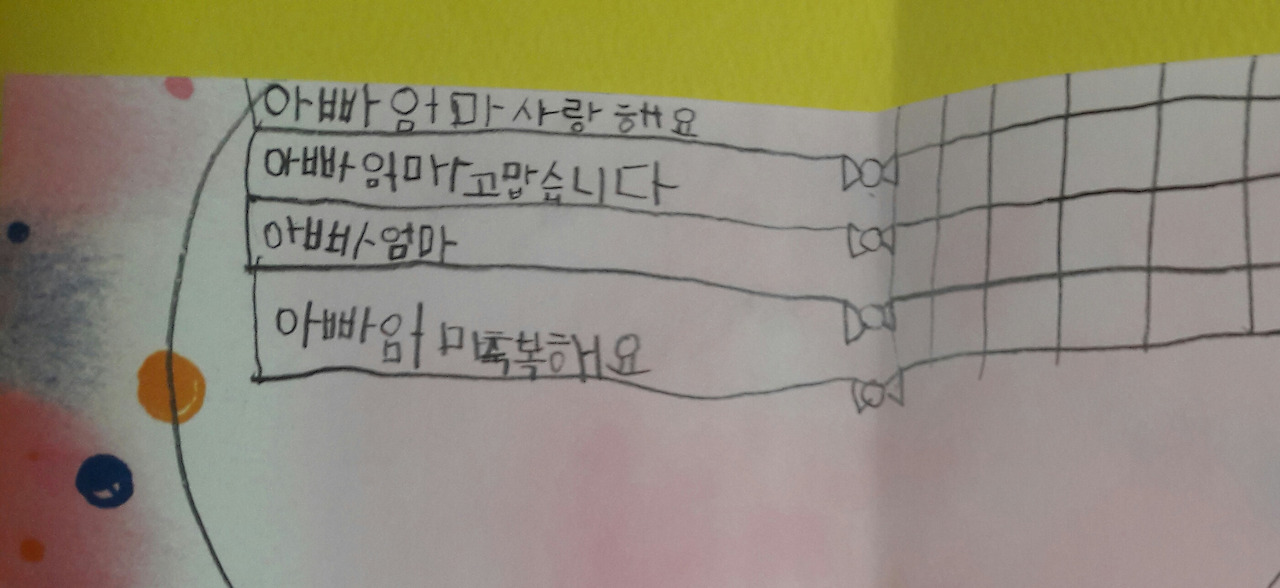 아빠 엄마 사랑해요
아빠엄마고맙습니다
아빠엄마
아빠엄마축복해요